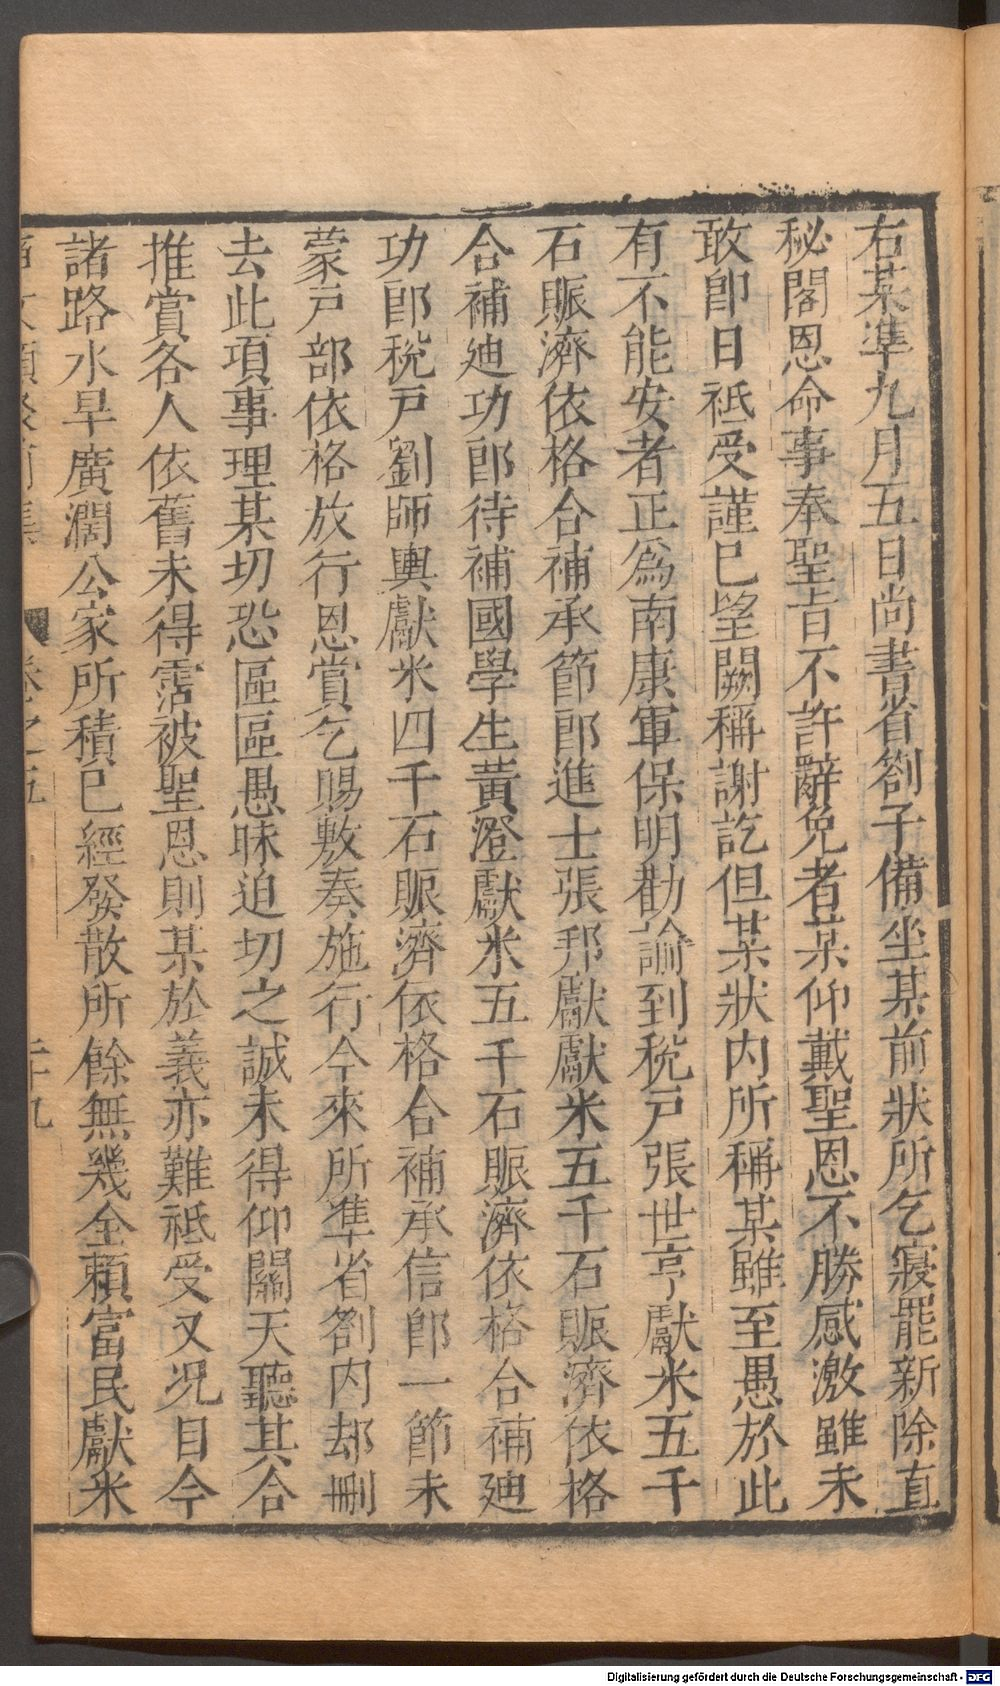 右某準九月五日尚書省劄子備坐某前狀所乞寢罷新除直
秘閣恩命事奉聖旨不許辭免者某仰戴聖恩不勝感激雖未
敢即日祗受謹已望闕稱謝訖但某狀内所稱某雖至愚於此
有不能安者正爲南康軍保明勸諭到稅戸張世亨獻米五千
石賑濟依格合補承節郎進士張邦獻獻米五千石賑濟依格
合補廸功郎待補國學生黃澄獻米五千石賑濟依格合補廸
功郎稅戸劉師輿獻米四千石賑濟依格合補承信郎一節未
蒙戸部依格放行恩賞乞賜敷奏施行今來所準省劄内却刪
去此項事理某切恐區區愚昧迫切之誠未得仰關天聽其合
推賞各人依舊未得霑被聖恩則某於義亦難祗受又况目今
諸路水旱廣濶公家所積已經發散所餘無幾全賴富民獻米
卷之五
二十九
Digitalisierung gefördert durch die Deutsche Forschungsgemeinschaft - DFG